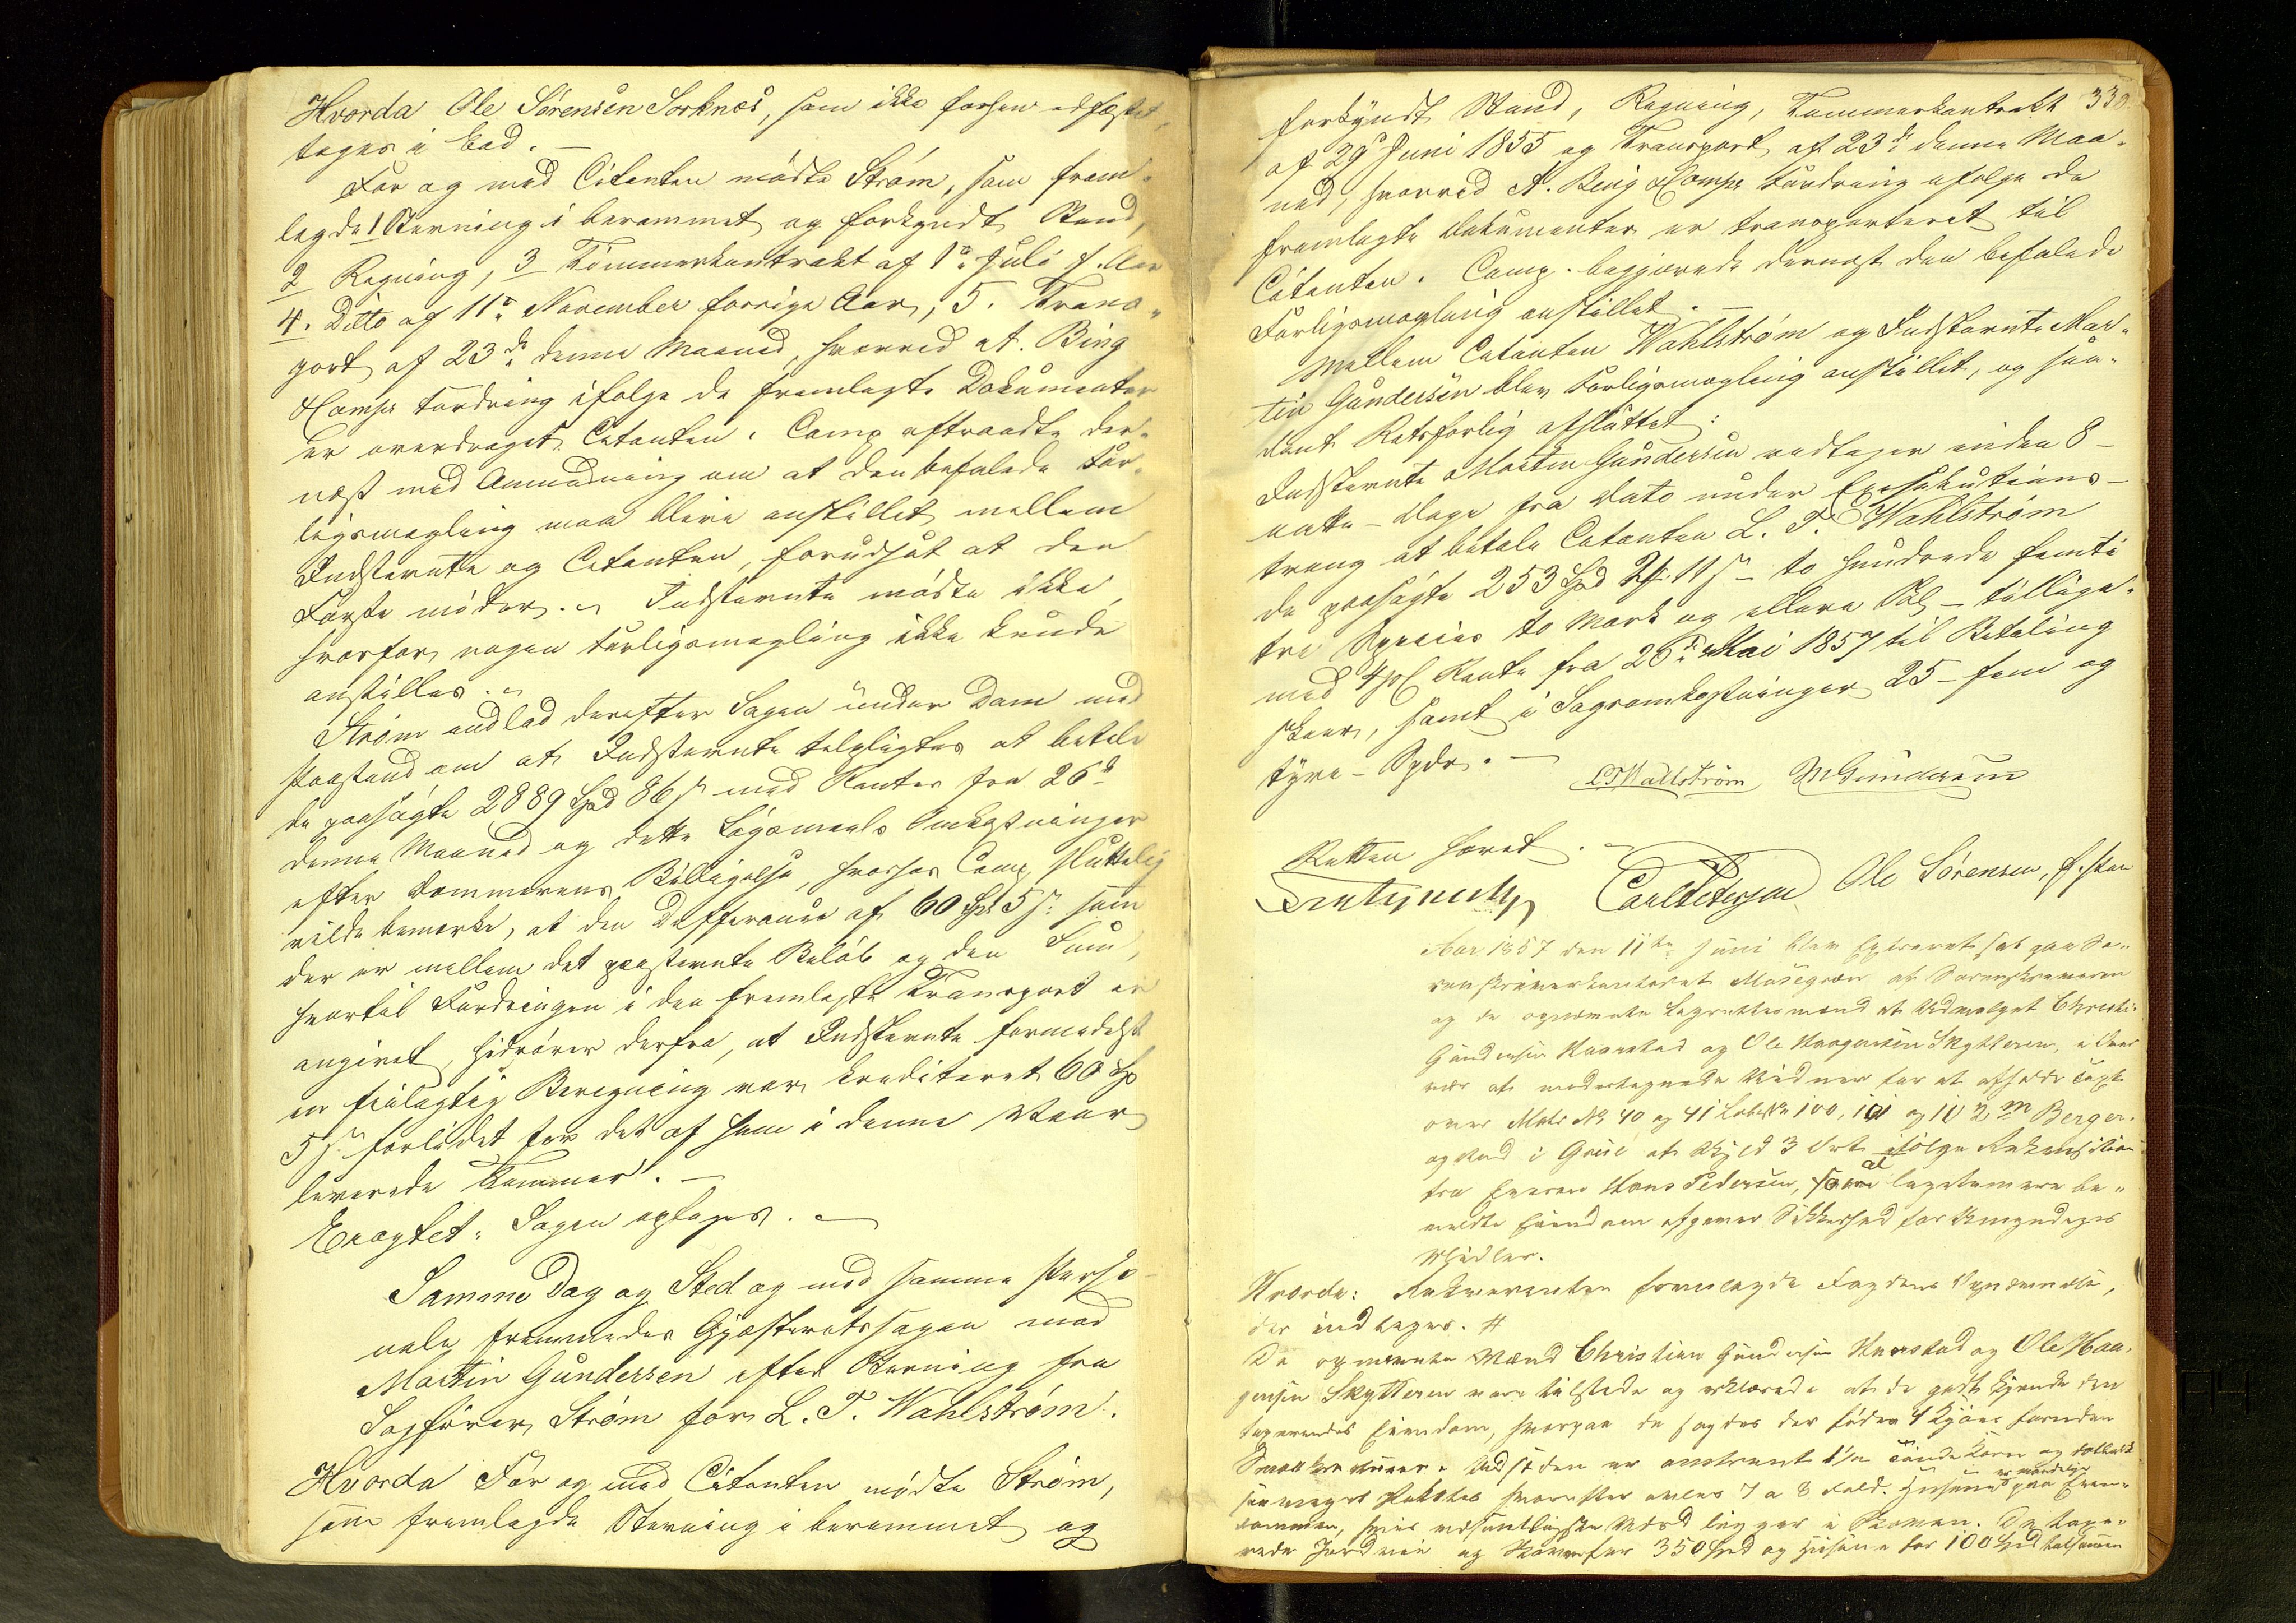 Hvorda Ole Sørensen Sorknæs, som ikke forhen edfæstet,
toges i Eed. —
For og med Citanten mødte Strøm, som frem-
lagde 1 Stevning i berammet og forkyndt Stand,
2 Regning, 3 Tømmerkontrakt af 1ste Juli f. Aar
4. Ditto af 11te November forrige Aar, 5. Trans-
port af 23de denne Maaned, hvorved A. Bing
& Comps Fordring ifølge de fremlagte Dokumenter
er overdraget Citanten. Comp. aftraadte der-
næst med Anmodning om at den befalede For-
ligsmægling maa blive anstillet mellem
Indstevnte og Citanten, forudsat at den
Første møder. — Indstevnte mødte ikke,
hvorfor nogen Forligsmægling ikke kunde
anstilles. —
Strøm indlod derefter Sagen under Dom med
Paastand om at Indstevnte tilpligtes at betale
de paasøgte 2889 Spd 86 s med Renter fra 26de
denne Maaned og dette Søgsmaals Omkostninger
efter Dommerens Billigelse, hvorhos Comp. sluttelig
vilde bemærke, at den Differance af 60 Spd 5 s som
der er mellem det paastevnte Beløb og den Sum,
hvortil Fordringen i den fremlagte Transport er
angivet, hidrører derfra, at Indstevnte formedelst
en feilagtig Beregning var krediteret 60 Sp
5 s forlidet for det af ham i denne Vaar
leverede Tømmer. —
Eragtet: Sagen optages. —
Samme Dag og Sted og med samme Perso-
nale fremmedes Gjæsteretssagen mod
Martin Gundersen efter Stevning fra
Sagfører Strøm for L. T. Wahlstrøm.
Hvorda For og med Citanten mødte Strøm,
som fremlagde Stevning i berammet og
330
forkyndt Stand, Regning, Tømmerkontrakt
af 29 Juni 1855 og Transport af 23de denne Maa-
ned, hvorved A. Bing & Comps Fordring ifølge de
fremlagte Dokumenter er transporteret til
Citanten. Comp. begjærede dernæst den befalede
Forligsmægling anstillet. —
Mellem Citanten Wahlstrøm og Indstevnte Mar-
tin Gundersen blev Forligsmægling anstillet, og saa-
dant Retsforlig afsluttet:
Indstevnte Martin Gundersen vedtager inden 8 —
otte — Dage fra Dato under Exsekutions-
tvang at betale Citanten L. T. Wahlstrøm
de paasøgte 253 Spd 2 11 s — to hundrede femti
tre Species to Mark og elleve Skl — tillige-
med 4 pCt Rente fra 26de Mai 1857 til Betaling
skeer, samt i Sagsomkostninger 25 — fem og
tyve — Spdr. —
LTWahlstrøm MGundersen
Retten hævet. —
Carl Petersen Ole Sørensen,
Aar 1857 den 11te Juni blev Extraret sat paa So-
renskriverkontoret af Sorenskriveren
og de opnævnte Lagrettesmænd Christi-
Gundersen og Ole Haagensen Skytteren, i Over-
vær af undertegnede Vidner for at afholde Taxt
over Matr No 40 og 41 Løbe No 100, 101 og 102 Berger-
i Grue af Skyld 3 Ort ifølge Rekvisition
fra Eieren Hans Pedersen, som lagde
meldte Eiendom afgiver Sikkerhed for Umyndiges
Midler.
Hvorda: Rekvirenten fremlagde Fogdens Opnævnelse,
der indtages. #
De opnævnte Mænd Christian Gundersen og Ole Haa-
gensen Skytteren vare tilstede og erklærede at de godt kjende den
Eiendom, hvorpaa de sagdes der fødes 4 Kjøer foruden
Udsæden er omtrent 1/2 Tønde Korn og
Potetes hvorefter avles 7 a 8 Fold. Husene paa Eien-
dommen, hvis væsentligste Værd ligger i Skoven.
rede Jordveien og Skoven for 350 Spd og Husene for 100 Spd tilsammen